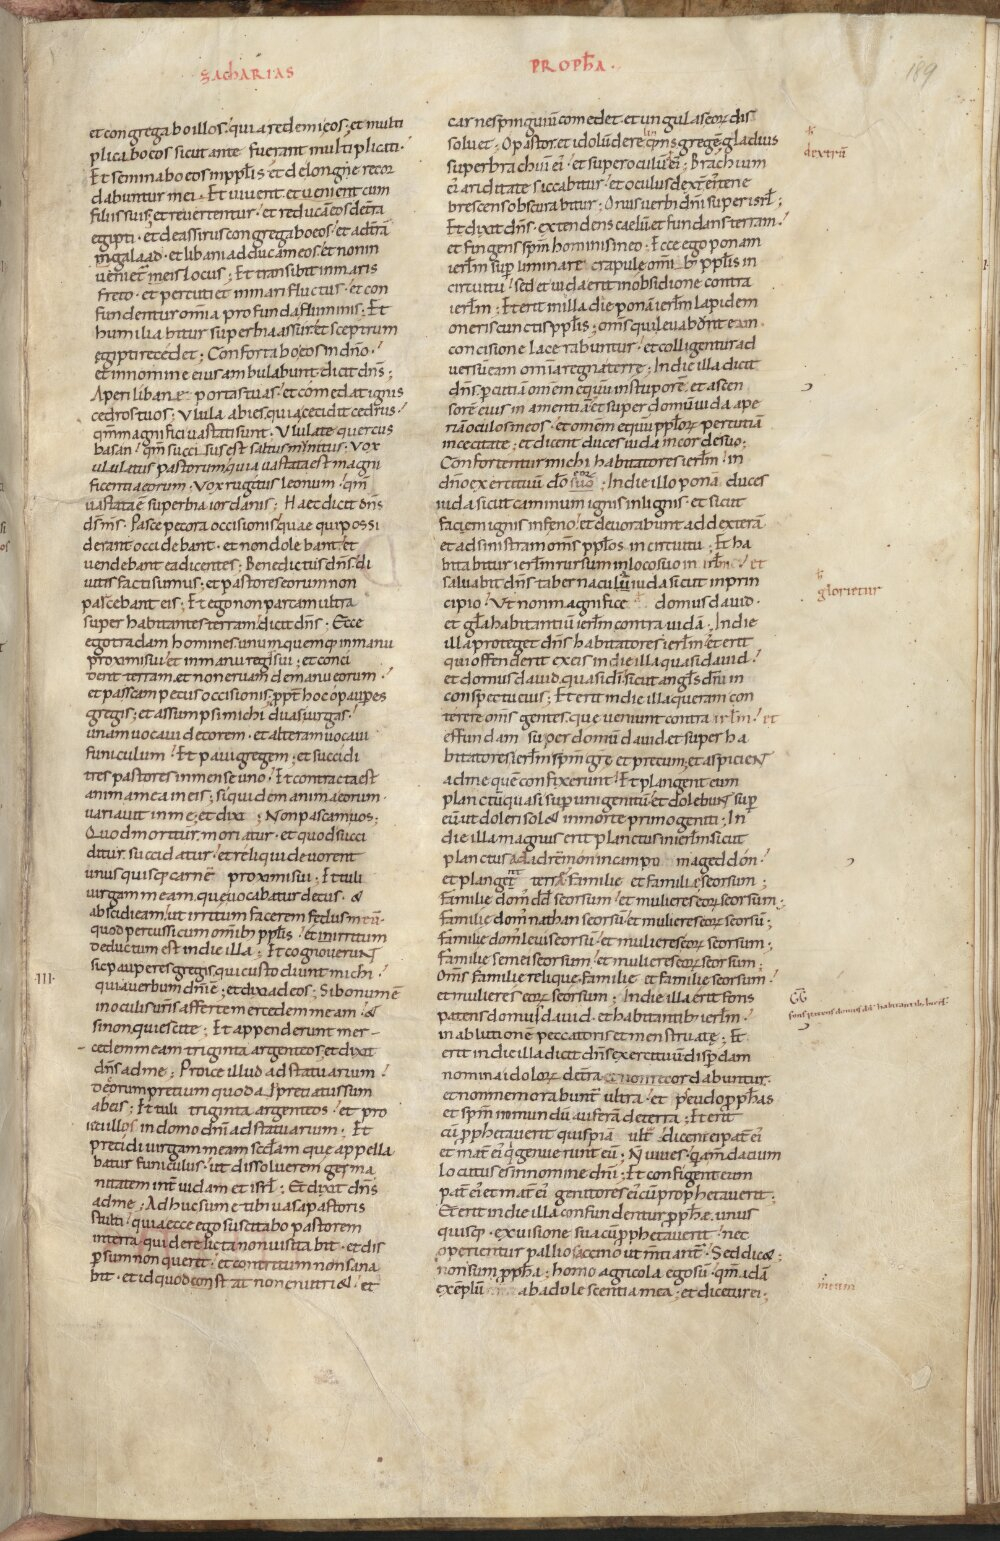 zachARIAS
PROPħA.
189
et congregabo illos. qui a redemi eos; et multi
plicabo eos sicut ante fuerant multiplicati.
Et seminabo eos in ppłis et de longe recor
dabuntur mei. Et vivent et venient cum
filiis suis; et revertentur. et reducā eos de tra
egipti. et de assirus congregabo eos. et ad trā
galaad. et libani adducam eos. et non in
locus; Et transibit in maris
freto. et percutiet in mari fluctus. et con
fundentur omia profunda fluminis; Et
humiliabitur superbia assur. et sceptrum
egipti recedet; Confortabo eos in dn̄o.
et in nomine eius ambulabunt dicit dn̄s;
Aperi libane portas tuas. et comedat ignis
cedros tuos; Ulula abies. quia cecidit cedrus.
qm̄ magnifici vastati sunt. Ululate quercus
basan. qm̄ succisus est saltus munitus. Vox
ululatus pastorum quia vastata est magni
ficentia eorum. Vox rugitus leonum. qm̄
vastata ē superbia iordanis; Haec dicit dn̄s
ds̄ ms̄. Pasce pecora occisionis. quae qui possi
derant occidebant. et non dolebant. et
vendebant ea dicentes; Benedictus dn̄s. di
vites facti sumus. et pastores eorum non
pascebant eis; Et ego non parcam ultra
super habitantes terram dicit dn̄s; Ecce
ego tradam homines. unumquemq; in manu
proximi sui. et in manu regis sui; et conci
dent terram. et non eruam de manu eorum.
et pascam pecus occisionis. ppt̄ hoc o pauperes
gregis; et assumpsi michi duas virgas.
unam vocavi decorem. et alteram vocavi
funiculum. Et pavi gregem; et succidi
tres pastores in mense uno. Et contracta est
anima mea in eis; siquidem anima eorum
variavit in me; et dixi; Non pascam vos;
Quod moritur. moriatur. et quod succi
ditur. succidatur. et reliqui devorent
unusquisq; carnē proximi sui; Et tuli
virgam meam. que vocabatur decus. &
abscidi eam. ut irritum facerem fedus meū.
quod percussi cum omib; ppłis. et in irritum
deductum est in die illa; Et cognoverunt
sic pauperes gregis. qui custodiunt michi.
III
quia verbum dn̄i ē; et dixi ad eos; Si bonum ē
in oculis vr̄is. afferte mercedem meam. &
si non. quiescite; Et appenderunt mer-
cedem meam triginta argenteos. et dixit
dn̄s ad me; Proice illud ad statuarium.
decorum pretium quod appretiatus sum
ab eis; Et tuli triginta argenteos. et pro
ieci illos in domo dn̄i ad statuarium. Et
precidi virgam meam scđam que appella
batur funiculus. ut dissolverem germa
nitatem int̄ iudam et isrł; Et dixit dn̄s
ad me; Adhuc sume tibi vasa pastoris
stulti. quia ecce ego suscitabo pastorem
in terra. qui derelicta non visitabit. et dis
psum non queret. et contritum non sana
bit. et id quod constat non enutri&. et
carnes pinguium comedet. et ungulas eoꝝ dis
solvet; O pastor. et idolū derelinq̄ns gregē. gladius
dextrū
super brachiū ei. et super oculū ei; Brachium
ei ariditate siccabitur. et oculus dext̄ ei tene
brescens obscurabitur; Onus verbi dn̄i super isrł;
Et dixit dn̄s. extendens caelū. et fundans terram.
et fingens spm̄ hominis in eo; Ecce ego ponam
ierłm sup liminare crapule omī b; ppłis in
circuitu. sed et iuda erit in obsidione contra
ierłm; Et erit in illa die ponā ierłm lapidem
oneris cunctis ppłis; oms̄ qui levabunt eam
concisione lacerabuntur. et colligentur ad
versū eam omnia regna terre; In die illa dicit
dn̄s. pcutiā omem equū in stuporē. et ascen
sorē eius in amentiā. et super domū iuda ape
riā oculos meos. et omem equū ppłoꝝ percutiā
in cecitate; et dicent duces iuda in corde suo;
Confortentur michi habitatores ierłm. in
dn̄o exercituū dō; In die illo ponā duces
iuda sicut caminum ignis in lignis. et sicut
faciem ignis in feno. et devorabunt ad dexterā
et ad sinistram oms̄ ppłos in circuitu; Et ha
bitabitur ierłm rursum in loco suo in et
salvabit dn̄s tabernacula iuda sicut in prin
cipio. Ut non magnifice domus david.
glorietur
et głā habitantiū ierłm contra iudā; In die
illa proteget dn̄s habitatores ierłm. et erit
qui offenderit ex eis in die illa quasi david.
et domus david. quasi di. sicut angłs dn̄i in
conspectu eius; Et erit in die illa queram con
terere oms̄ gentes. que veniunt contra irłm. et
effundam super domū david. et super ha
bitatores ierłm spm̄ grē et precum. et aspicient
ad me quē confixerunt. Et plangent eum
planctu quasi sup unigenitū. et dolebunt sup
eū ut doleri sol& in morte primogeniti; In
die illa magnus erit planctus in ierłm sicut
planctus adadremmon in campo mageddon.
et planget terra. familie et familie seorsum;
familie dom dd̄ seorsum. et mulieres eoꝝ seorsum;
familie dom nathan seorsū. et mulieres eoꝝ seorsū;
familie dom levi seorsū. et mulieres eoꝝ seorsum;
familie semei seorsum. et mulieres eoꝝ seorsum;
Oms̄ familie relique. familie et familie seorsum.
et mulieres eoꝝ seorsum; In die illa erit fons
patens domui david. et habitantib; ierłm.
in ablutionē peccatoris et menstruatę; Et
erit in die illa dicit dn̄s exercituū. dispdam
nomina idoloꝝ de tra. et non recordabuntur.
et non memorabunt̄ ultra. et pseudopphas
et spm̄ inmundū auferā de terra; Et erit
cū pphetaverit quispiā ult̄. dicent ei pat̄ ei
et mat̄ ei. q̄ genuerunt eū; N̄ vives. q̄ mdacium
locutus es in nomine dn̄i; Et configent eum
pat̄ ei et mat̄ ei genitores ei cū prophetaverit;
Et erit in die illa confundentur pphæ. unus
quisq; ex visione sua cū pphetaverit. nec
operientur pallio saccino ut mtiant̄. Sed dic&;
non sum ppha; homo agricola ego sū. qm̄ adā
exēplū ab adolescentia mea; et dicetur ei;
meum